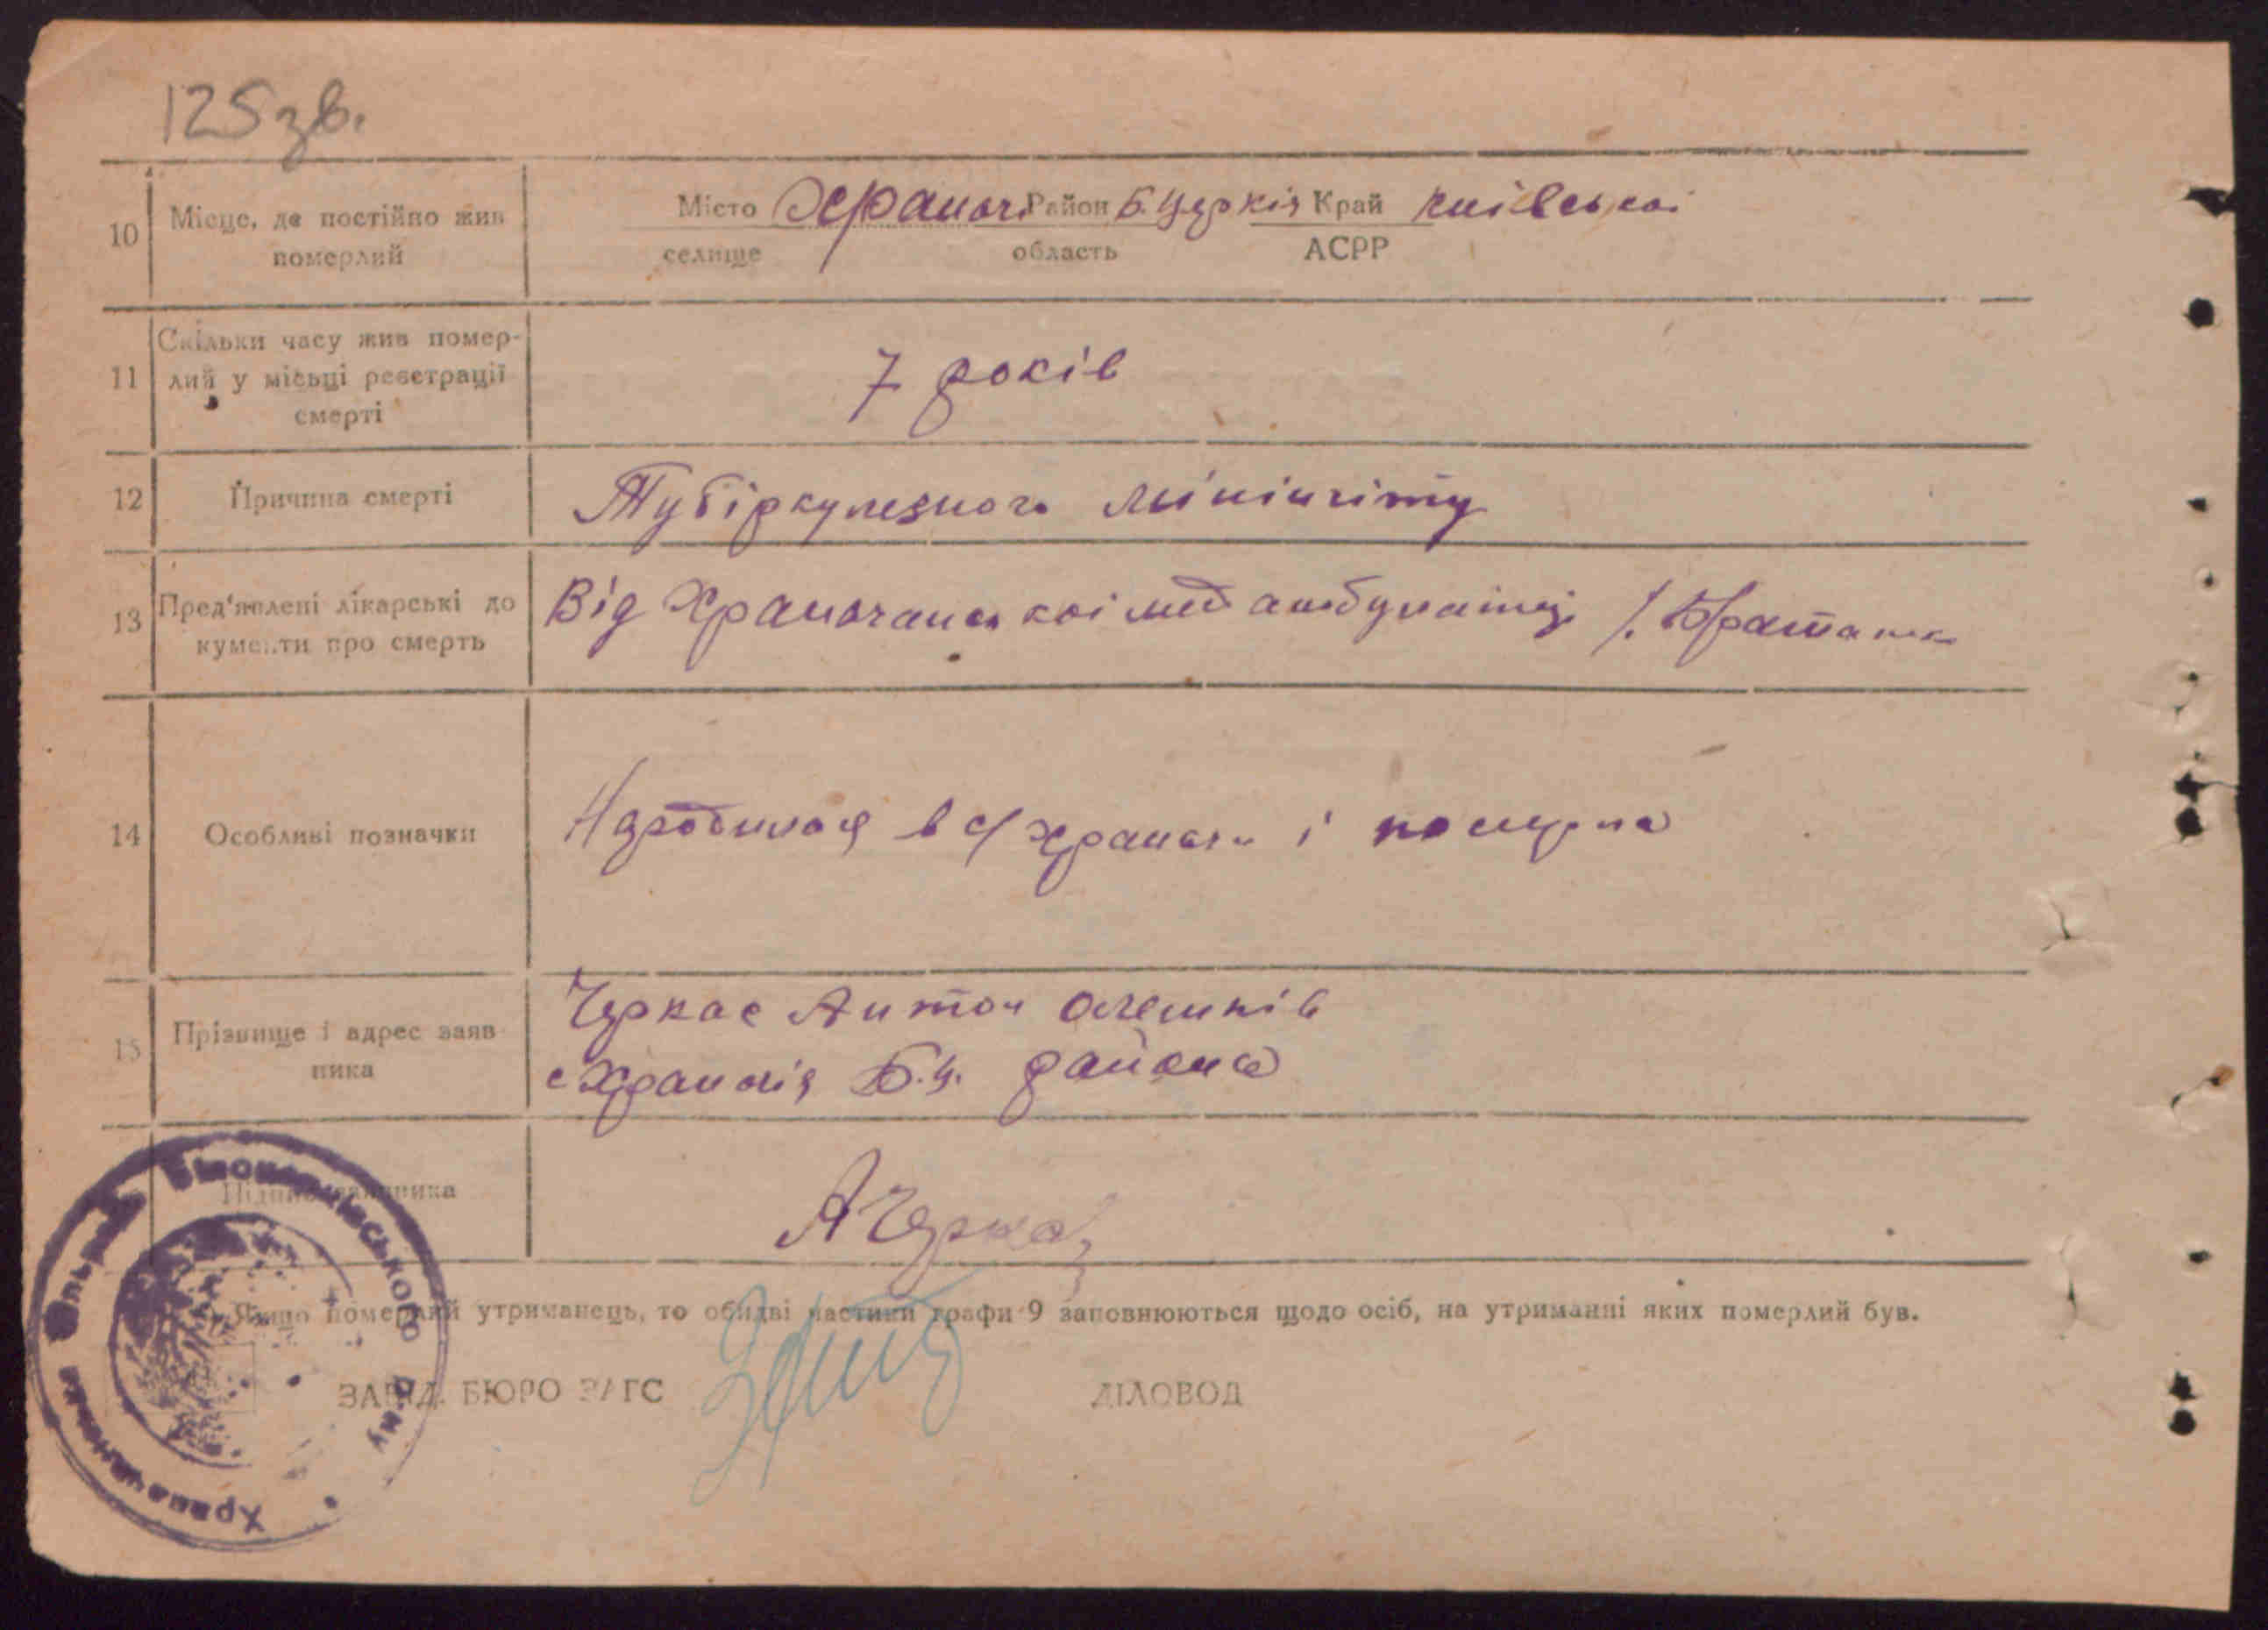 125зв.
10 Місце, де постійно жив померлий
Місто Храпачі Район Б. Церків Край київської
селище область АСРР
11 Скільки часу жив помер-
лий у місьці реєстрації
смерті
7 років
12 Причина смерті
Тубіркулезного мінінгіту
13 Пред'явлені лікарські до
кументи про смерть
Від Храпачанської мед амбулаторії
14 Особливі позначки
Народилася в с/ Храпачи і померла
15 Прізвище і адрес заяв
ника
Черкас Антон
с Храпачів Б.Ц. района
Підпис заявника
А Черкас
Якщо померлий утриманець, то обидві частини графи 9 заповнюються щодо осіб, на утриманні яких померлий був.
ЗАВІД. БЮРО ЗАГС ДІЛОВОД
Храпачанська сільрада Білоцерківського р-ну